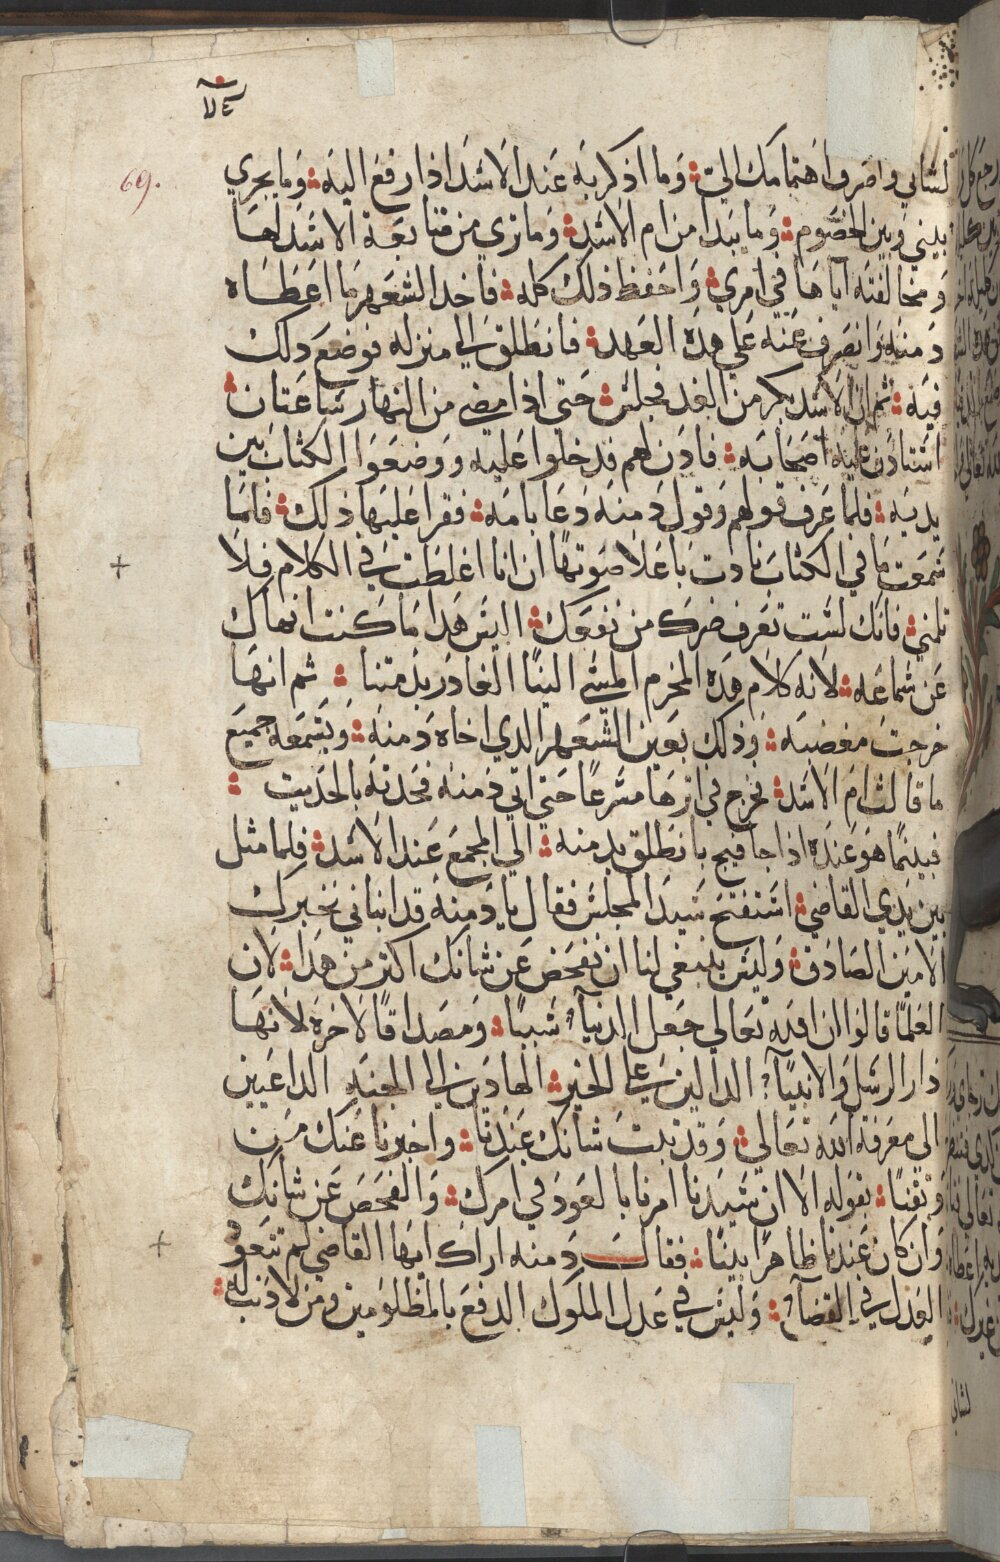 69.
لشاني واصرف اهتمامك الي وما اذكر به عند الاسد اذا رفع اليه وما يجري
بيني وبين الخصوم وما يبدا من ام الاسد وما تري من متابعة الاسد لها
ومخالفته اياها في امري واحفظ ذلك كله فاخد الشعهر ما اعطاه
دمنه وانصرف عنه علي هده العهد فانطلق الي منزله فوضع دلك
فيه ثم ان الاسد بكر من الغد فجلس حتي اذا مضي من النهار ساعتان
استادن عليه اصحابه فادن لهم فدخلوا عليه ووضعوا الكتاب بين
يديه فلما عرف قولهم وقول دمنه دعا بامه فقرا عليها ذلك فلما
سمعت ما في الكتاب نادت باعلا صوتها ان انا اغلظت في الكلام فلا
تلمني فانك لست تعرف ضرك من نفعك اليس هدا ما كنت انهاك
عن سماعه لانه كلام هده المجرم المسي الينا الغادر بدمتنا ثم انها
خرجت مغضبه وذلك بعين الشعهر الدي اخاه دمنه وبسمعه جميع
ما قالت ام الاسد فخرج في اثرها مسرعا حتي اتي دمنه فحدته بالحديت
فبينما هو عنده اذا جا فيج بانطلق بدمنه الي المجمع عند الاسد فلما مثل
بين يدي القاضي استفتح سيد المجلس فقال يا دمنه قد انباني بخبرك
الامين الصادق وليس ينبغي لنا ان نفحص عن شانك اكتر من هدا لان
العلما قالوا ان الله تعالي جعل الدنيا سببا ومصداقا للاخره لانها
دار الرسل والانبيا الدالين علي الخير الهادين الي الجنه الداعين
الي معرفة الله تعالي وقد تبت شانك عندنا واخبرنا عنك من
وتقنا بقوله الا ان سيدنا امرنا بالعود في امرك والفحص عن شانك
وان كان عندنا ظاهرا بينا فقال دمنه اراك ايها القاضي لم تتعود
العدل في القضا وليس في عدل الملوك الدفع بالمظلومين ومن لا دنب له